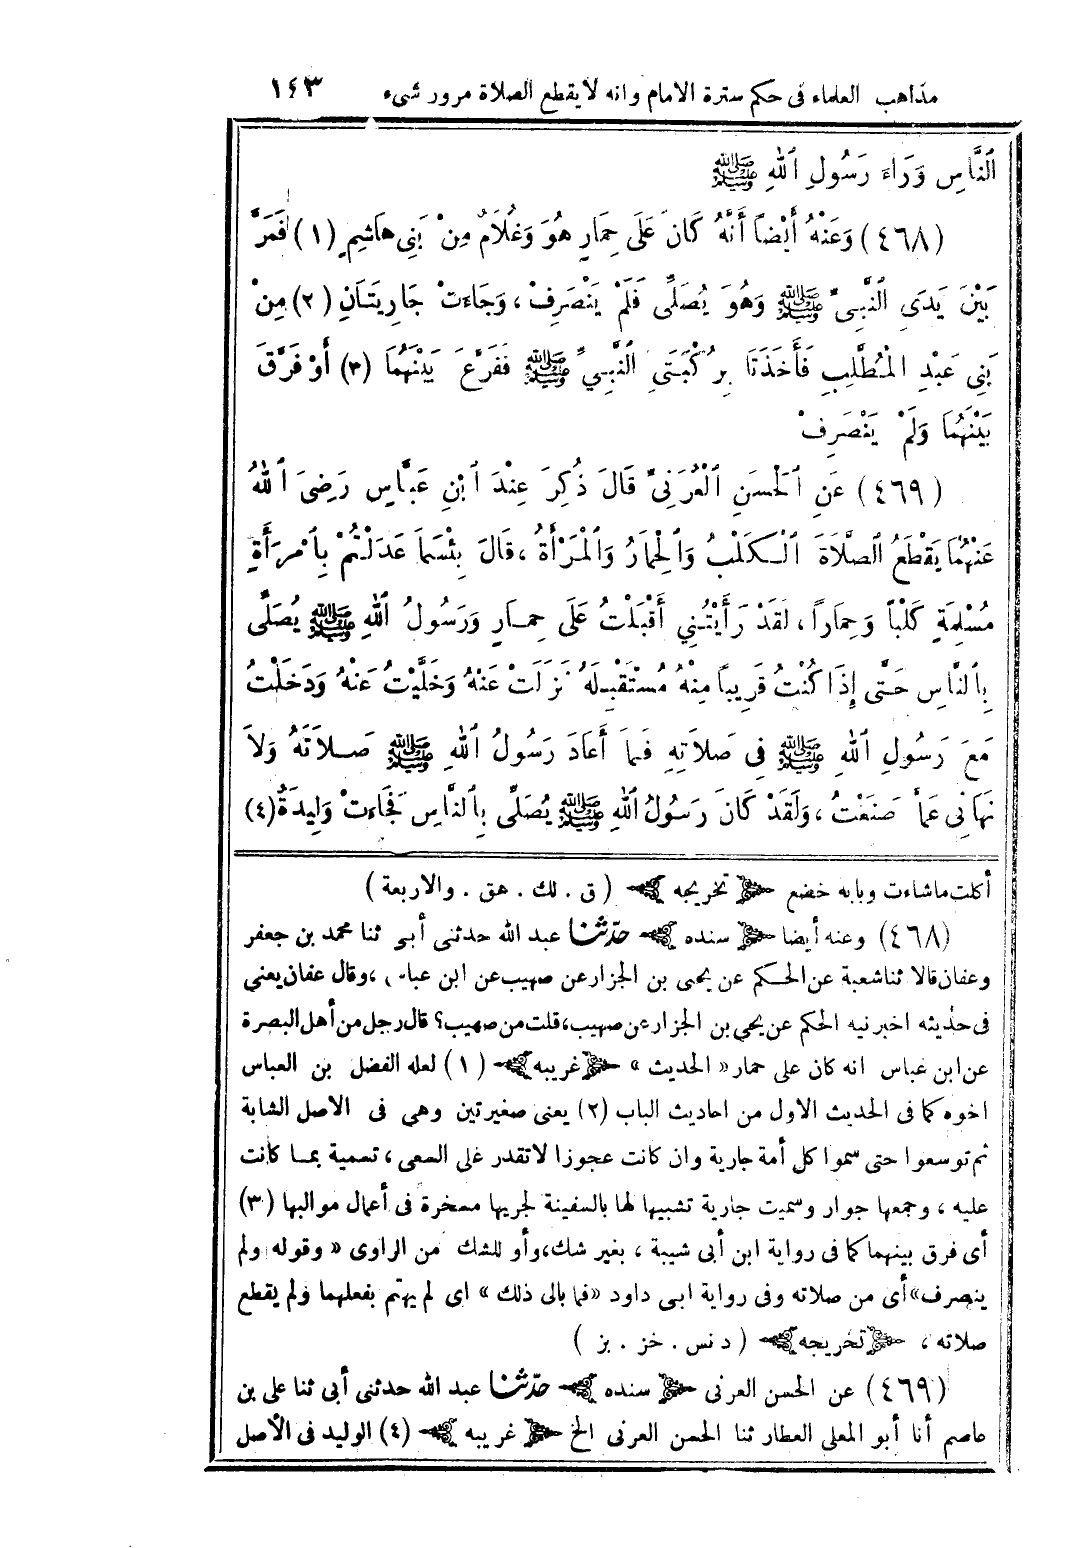 مذاهب العلماء فى حكم سترة الامام وانه لا يقطع الصلاة مرور شىء ١٤٣
ٱلنَّاسِ وَرَاءَ رَسُولِ ٱللهِ ﷺ
(٤٦٨) وَعَنْهُ أَيْضاً أَنَّهُ كَانَ عَلَى حِمَارٍ هُوَ وَغُلَامٌ مِنْ بَنِى هَاشِمٍ (١) فَمَرَّ
بَيْنَ يَدَىِ ٱلنَّبِىِّ ﷺ وَهُوَ يُصَلِّى فَلَمْ يَنْصَرِفْ ، وَجَاءَتْ جَارِيَتَانِ (٢) مِنْ
بَنِى عَبْدِ الْمُطَّلِبِ فَأَخَذَتَا بِرُكْبَتَىِ ٱلنَّبِيِّ ﷺ فَفَرَّعَ بَيْنَهُمَا (٣) أَوْ فَرَّقَ
بَيْنَهُمَا وَلَمْ يَنْصَرِفْ
(٤٦٩) عَنِ ٱلْحَسَنِ ٱلْعُرَنِىِّ قَالَ ذُكِرَ عِنْدَ ٱبْنِ عَبَّاسٍ رَضِىَ ٱللهُ
عَنْهُمَا يَقْطَعُ ٱلصَّلَاةَ ٱلْكَلْبُ وَٱلْحِمَارُ وَٱلْمَرْأَةُ ، قَالَ بِئْسَمَا عَدَلْتُمْ بِٱمْرَأَةٍ
مُسْلِمَةٍ كَلْباً وَحِمَاراً ، لَقَدْ رَأَيْتُنِي أَقْبَلْتُ عَلَى حِمَارٍ وَرَسُولُ ٱللهِ ﷺ يُصَلِّى
بِٱلنَّاسِ حَتَّى إِذَا كُنْتُ قَرِيباً مِنْهُ مُسْتَقْبِلَهُ نَزَلَتْ عَنْهُ وَخَلَّيْتُ عَنْهُ وَدَخَلْتُ
مَعَ رَسُولِ ٱللهِ ﷺ فِى صَلَاتِهِ فَمَا أَعَادَ رَسُولُ ٱللهِ ﷺ صَلَاتَهُ وَلَا
نَهَانِى عَمَّا صَنَعْتُ ، وَلَقَدْ كَانَ رَسُولُ ٱللهِ ﷺ يُصَلِّى بِٱلنَّاسِ فَجَاءَتْ وَلِيدَةٌ (٤)
أكلت ما شاءت وبابه خضع ﴿ تخريجه ﴾ ( ق . لك . هق . والاربعة )
(٤٦٨) وعنه أيضا ﴿ سنده ﴾ حدّثنا عبد الله حدثنى أبى ثنا محمد بن جعفر
وعفان قالا ثنا شعبة عن الحكم عن يحيى بن الجزار عن صهيب عن ابن عباس ، وقال عفان يعنى
فى حديثه اخبرنيه الحكم عن يحيى بن الجزار عن صهيب، قلت من صهيب؟ قال رجل من أهل البصرة
عن ابن عباس انه كان على حمار « الحديث » ﴿ غريبه ﴾ (١) لعله الفضل بن العباس
اخوه كما فى الحديث الاول من احاديث الباب (٢) يعنى صغيرتين وهى فى الاصل الشابة
ثم توسعوا حتى سموا كل أمة جارية وان كانت عجوزا لا تقدر على السعى ، تسمية بما كانت
عليه ، وجمعها جوار وسميت جارية تشبيها لها بالسفينة لجريها مسخرة فى أعمال مواليها (٣)
أى فرق بينهما كما فى رواية ابن أبى شيبة ، بغير شك، وأو للشك من الراوى « وقوله ولم
ينصرف» أى من صلاته وفى رواية ابى داود «فما بالى ذلك » اى لم يهتم بفعلهما ولم يقطع
صلاته ، ﴿ تخريجه ﴾ ( د نس . خز . بز )
(٤٦٩) عن الحسن العرنى ﴿ سنده ﴾ حدّثنا عبد الله حدثنى أبى ثنا على بن
عاصم أنا أبو المعلى العطار ثنا الحسن العرنى الخ ﴿ غريبه ﴾ (٤) الوليد فى الأصل